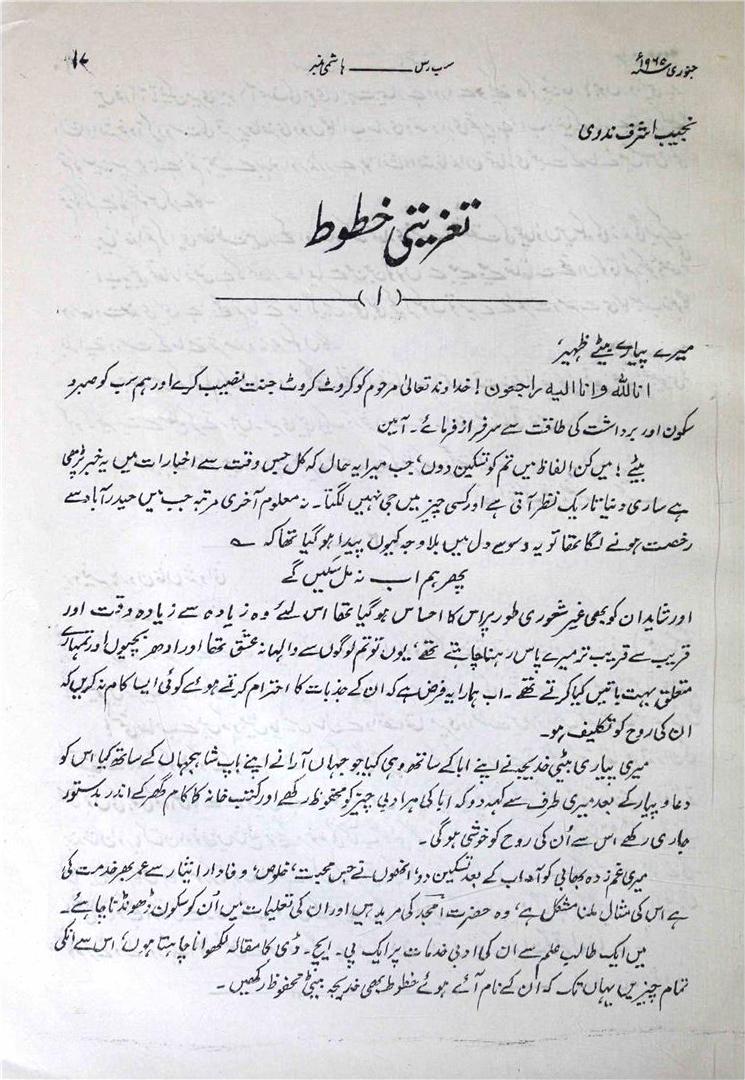 جنوری ۱۹۶۵ء سب رس ــــــ ہاشمی نمبر ۱۷
نجیب اشرف ندوی
تعزیتی خطوط
(۱)
میرے پیارے بیٹے ظہیر'
انا للہ وانا الیہ راجعون! خداوند تعالیٰ مرحوم کو کروٹ کروٹ جنت نصیب کرے اور ہم سب کو صبر و
سکون اور برداشت کی طاقت سے سرفراز فرمائے۔ آمین
بیٹے! میں کن الفاظ میں تم کو تسکین دوں' جب میرا یہ حال کہ کل جس وقت سے اخبارات میں یہ خبر پڑھی
ہے ساری دنیا تاریک نظر آتی ہے اور کسی چیز میں جی نہیں لگتا۔ نہ معلوم آخری مرتبہ جب میں حیدرآباد سے
رخصت ہونے لگا تھا تو یہ وسوسے دل میں بلا وجہ کیوں پیدا ہو گیا تھا کہ ؎
پھر ہم اب نہ مل سکیں گے
اور شاید ان کو بھی غیر شعوری طور پر اس کا احساس ہو گیا تھا اس لیئے وہ زیادہ سے زیادہ وقت اور
قریب سے قریب تر میرے پاس رہنا چاہتے تھے' یوں تو تم لوگوں سے والہانہ عشق تھا اور ادھر بچیوں اور تمہارے
متعلق بہت باتیں کیا کرتے تھے۔ اب ہمارا یہ فرض ہے کہ ان کے جذبات کا احترام کرتے ہوئے کوئی ایسا کام نہ کریں کہ
ان کی روح کو تکلیف ہو۔
میری پیاری بیٹی خدیجہ نے اپنے ابا کے ساتھ وہی کیا جو جہاں آرا نے اپنے باپ شاہجہاں کے ساتھ کیا اس کو
دعا و پیار کے بعد میری طرف سے کہہ دو کہ ابا کی ہر ادبی چیز کو محفوظ رکھے اور کتب خانہ کا کام گھر کے اندر بدستور
جاری رکھے اس سے اُن کی روح کو خوشی ہوگی۔
میری غم زدہ بھابی کو آداب کے بعد تسکین دو' انھوں نے جس محبت' خلوص' وفا اور ایثار سے عمر بھر خدمت کی
ہے اس کی مثال ملنا مشکل ہے' وہ حضرت امجد کی مرید ہیں اور ان کی تعلیمات میں اُن کو سکون ڈھونڈنا چاہئے۔
میں ایک طالب علم سے ان کی ادبی خدمات پر ایک پی۔ ایچ۔ ڈی کا مقالہ لکھوانا چاہتا ہوں' اس سے انکی
تمام چیزیں یہاں تک کہ اُن کے نام آئے ہوئے خطوط بھی خدیجہ بیٹی محفوظ رکھیں۔